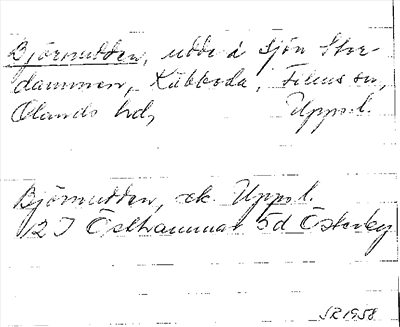 Björnudden, udde i sjön Stor-
dammen, Kubboda, Films sn,
Olands hd, Uppsl.
Björnudden, ek. Uppsl.
12 I Östhammar 5d Österby
SR 1958